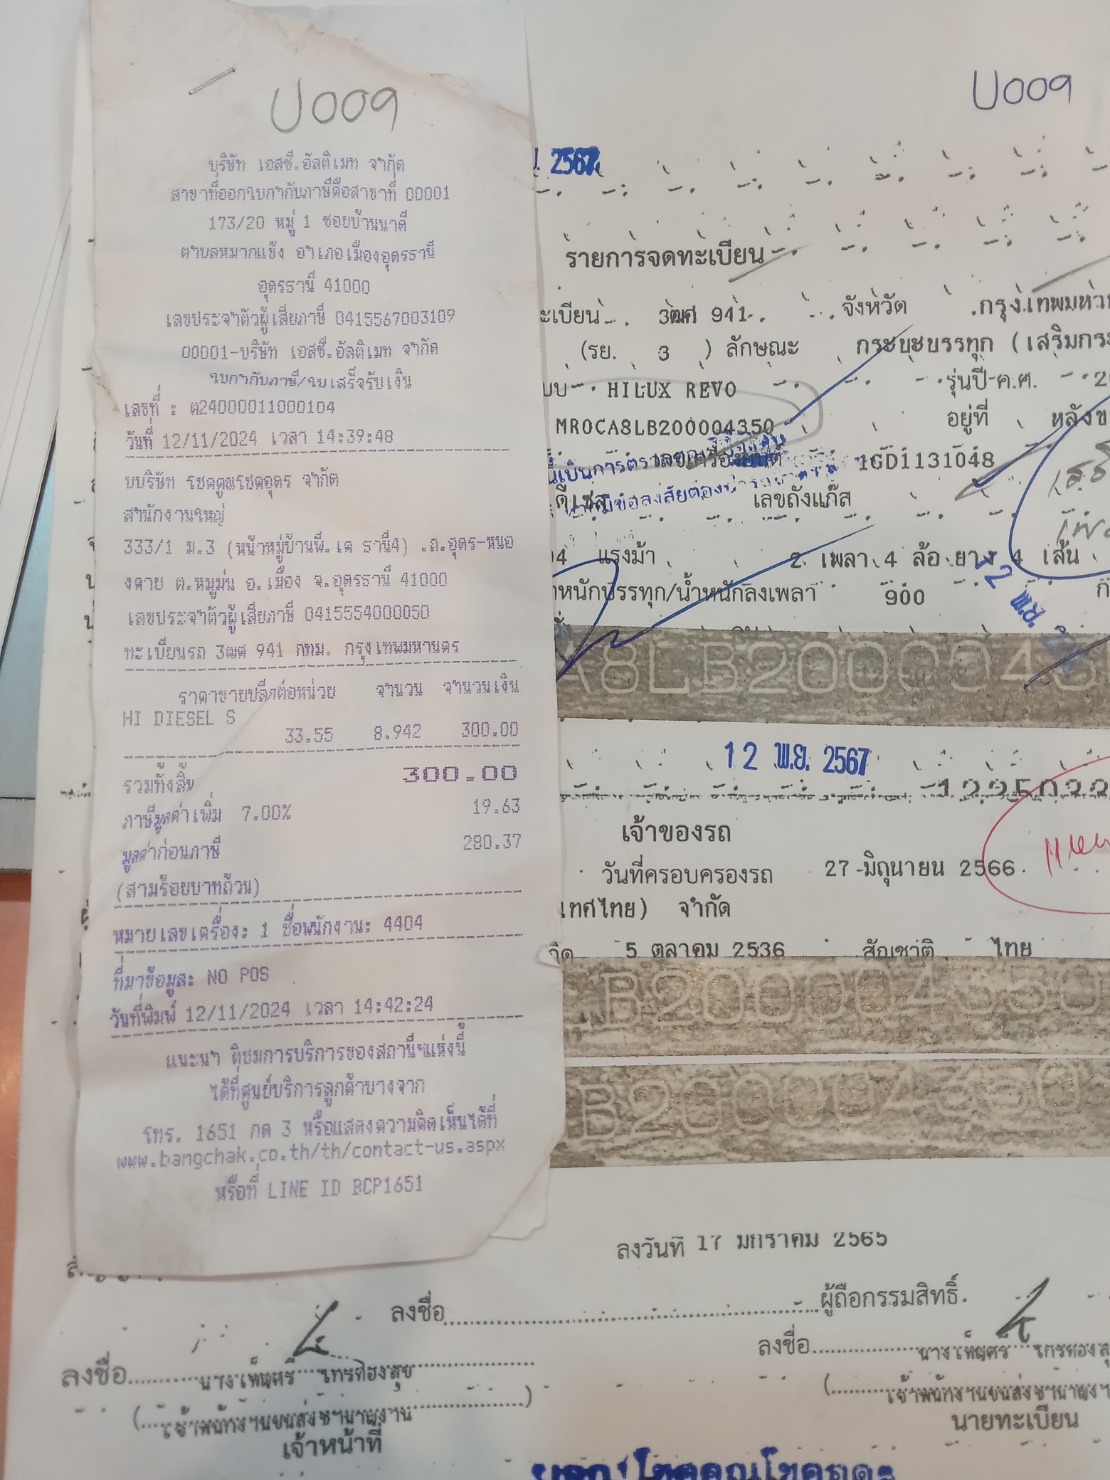 U009
บริษัท เอสซี.อัลติเมท จำกัด
สาขาที่ออกใบกำกับภาษีคือสาขาที่ 00001
173/20 หมู่ 1 ซอยบ้านนาดี
ตำบลหมากแข้ง อำเภอเมืองอุดรธานี
อุดรธานี 41000
เลขประจำตัวผู้เสียภาษี 0415567003109
00001-บริษัท เอสซี.อัลติเมท จำกัด
ใบกำกับภาษี/ใบเสร็จรับเงิน
เลขที่ : ต24000011000104
วันที่ 12/11/2024 เวลา 14:39:48
บบริษัท โชคคูณโชคอุดร จำกัด
สำนักงานใหญ่
333/1 ม.3 (หน้าหมู่บ้านพี.เค ธานี4) .ถ.อุดร-หนอ
งคาย ต.หมูม่น อ.เมือง จ.อุดรธานี 41000
เลขประจำตัวผู้เสียภาษี 0415554000050
ทะเบียนรถ 3ฒศ 941 กทม. กรุงเทพมหานคร
ราคาขายปลีกต่อหน่วย จำนวน จำนวนเงิน
HI DIESEL S
33.55 8.942 300.00
รวมทั้งสิ้น 300.00
ภาษีมูลค่าเพิ่ม 7.00% 19.63
มูลค่าก่อนภาษี 280.37
(สามร้อยบาทถ้วน)
หมายเลขเครื่อง: 1 ชื่อพนักงาน: 4404
ที่มาข้อมูล: NO POS
วันที่พิมพ์ 12/11/2024 เวลา 14:42:24
แนะนำ ติชมการบริการของสถานีฯแห่งนี้
ได้ที่ศูนย์บริการลูกค้าบางจาก
โทร. 1651 กด 3 หรือแสดงความคิดเห็นได้ที่
www.bangchak.co.th/th/contact-us.aspx
หรือที่ LINE ID BCP1651
U009
2567
รายการจดทะเบียน
ะเบียน 3ฒศ 941 จังหวัด กรุงเทพมหาน
(รย. 3 ) ลักษณะ กระบะบรรทุก (เสริมกระ
HILUX REVO รุ่นปี ค.ศ. 20
MR0CA8LB200004350 อยู่ที่ หลังข
1GD1131048
ดีเซล เลขถังแก๊ส
04 แรงม้า 2 เพลา 4 ล้อ ยาง 4 เส้น
ำหนักบรรทุก/น้ำหนักลงเพลา 900 ก
A8LB20000435
12 พ.ย. 2567
เจ้าของรถ
วันที่ครอบครองรถ 27 มิถุนายน 2566
เทศไทย) จำกัด
5 ตุลาคม 2536 สัญชาติ ไทย
LB200004350
B200004350
ลงวันที่ 17 มกราคม 2565
ลงชื่อ ผู้ถือกรรมสิทธิ์
ลงชื่อ นางเพ็ญศรี ไกรทองสุข
(เจ้าพนักงานขนส่งชำนาญงาน)
เจ้าหน้าที่
ลงชื่อ นางเพ็ญศรี ไกรทองสุ
(เจ้าพนักงานขนส่งชำนาญง
นายทะเบียน